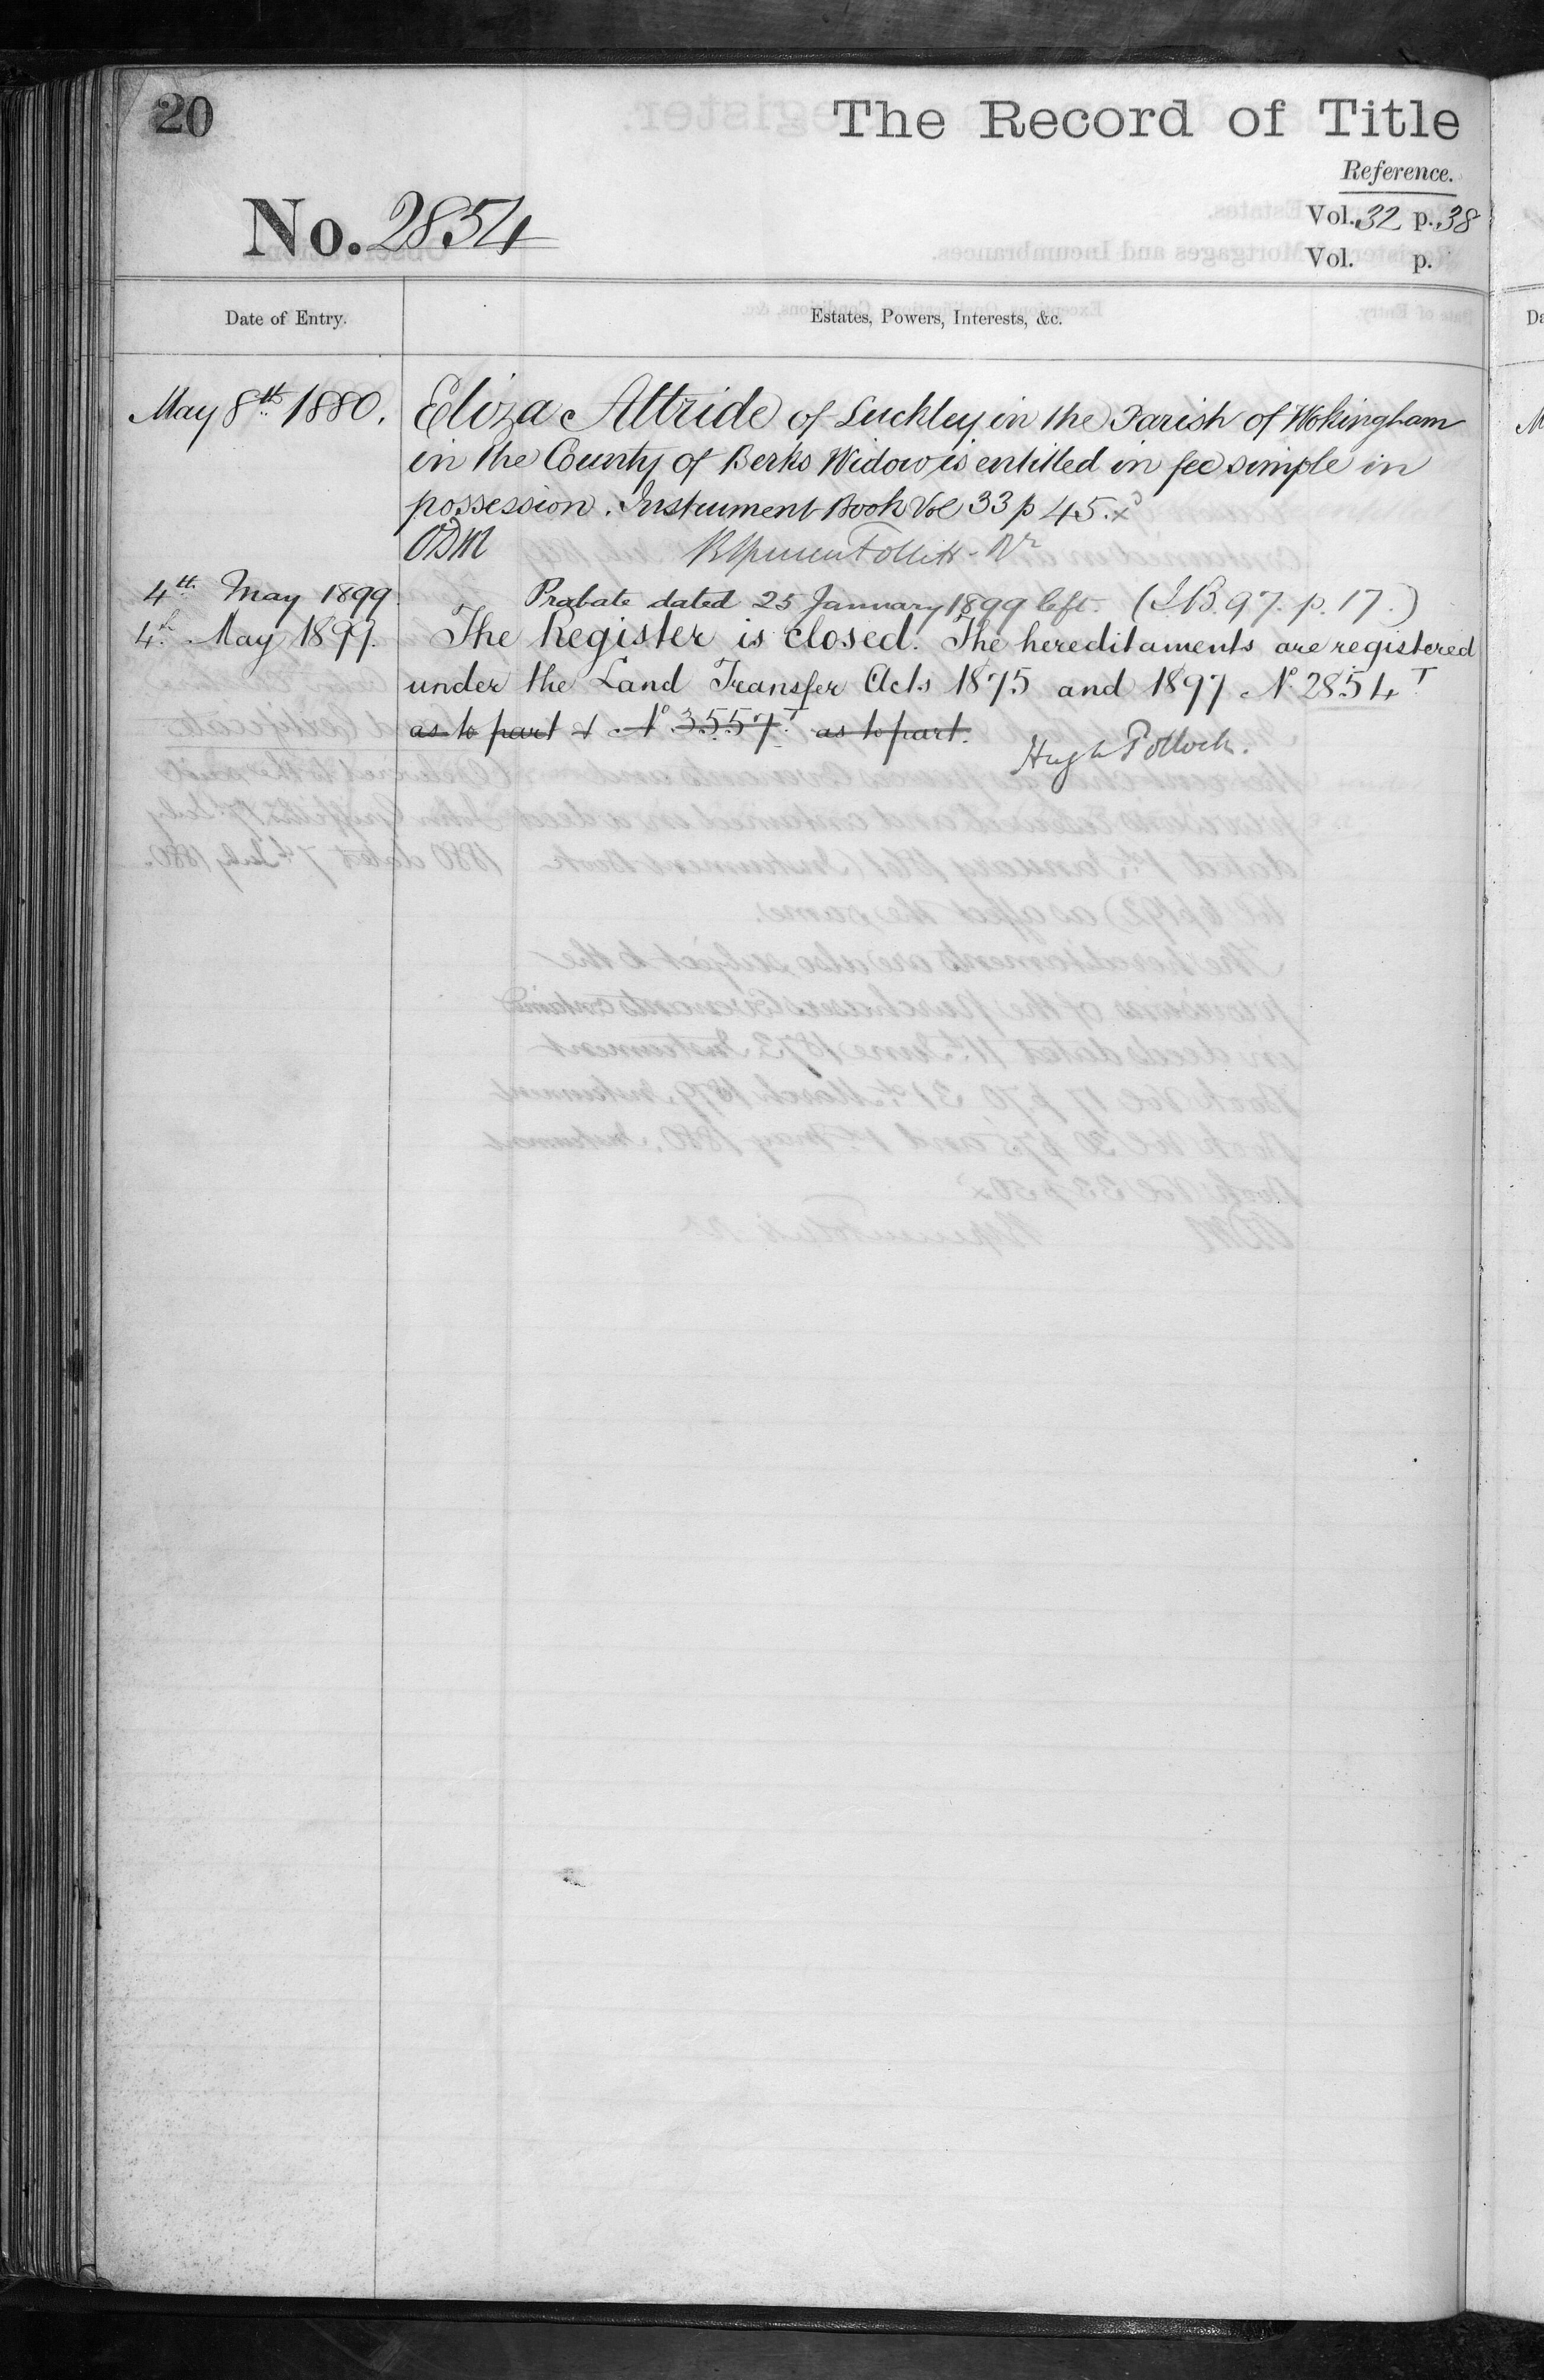 20
The Record of Title
Reference.
No. 2854
Vol. 32 p. 38
Vol. p.
Date of Entry.
Estates, Powers, Interests, &c.
May 8th 1880. Eliza Attride of Luckley in the Parish of Wokingham
in the County of Berks Widow is entitled in fee simple in
possession. Instrument Book Vol 33 p 45.
ODM
4th May 1899. Probate dated 25 January 1899 left. (I.B. 97. p. 17.)
4th May 1899. The Register is closed. The hereditaments are registered
under the Land Transfer Acts 1875 and 1897 No. 2854T
as to part & No 3557T as to part.
Hugh Pollock.